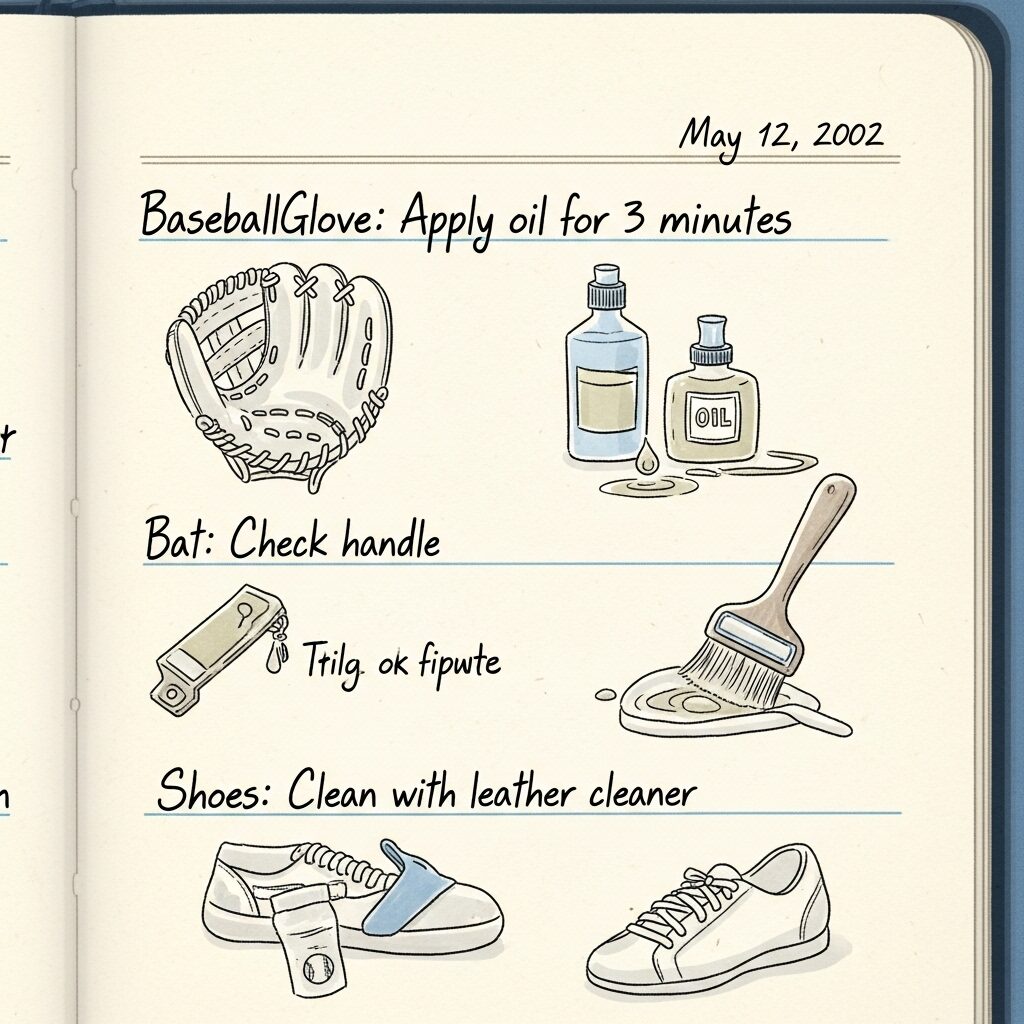 May 12, 2002
BaseballGlove: Apply oil for 3 minutes
OIL
Bat: Check handle
ok
Shoes: Clean with leather cleaner